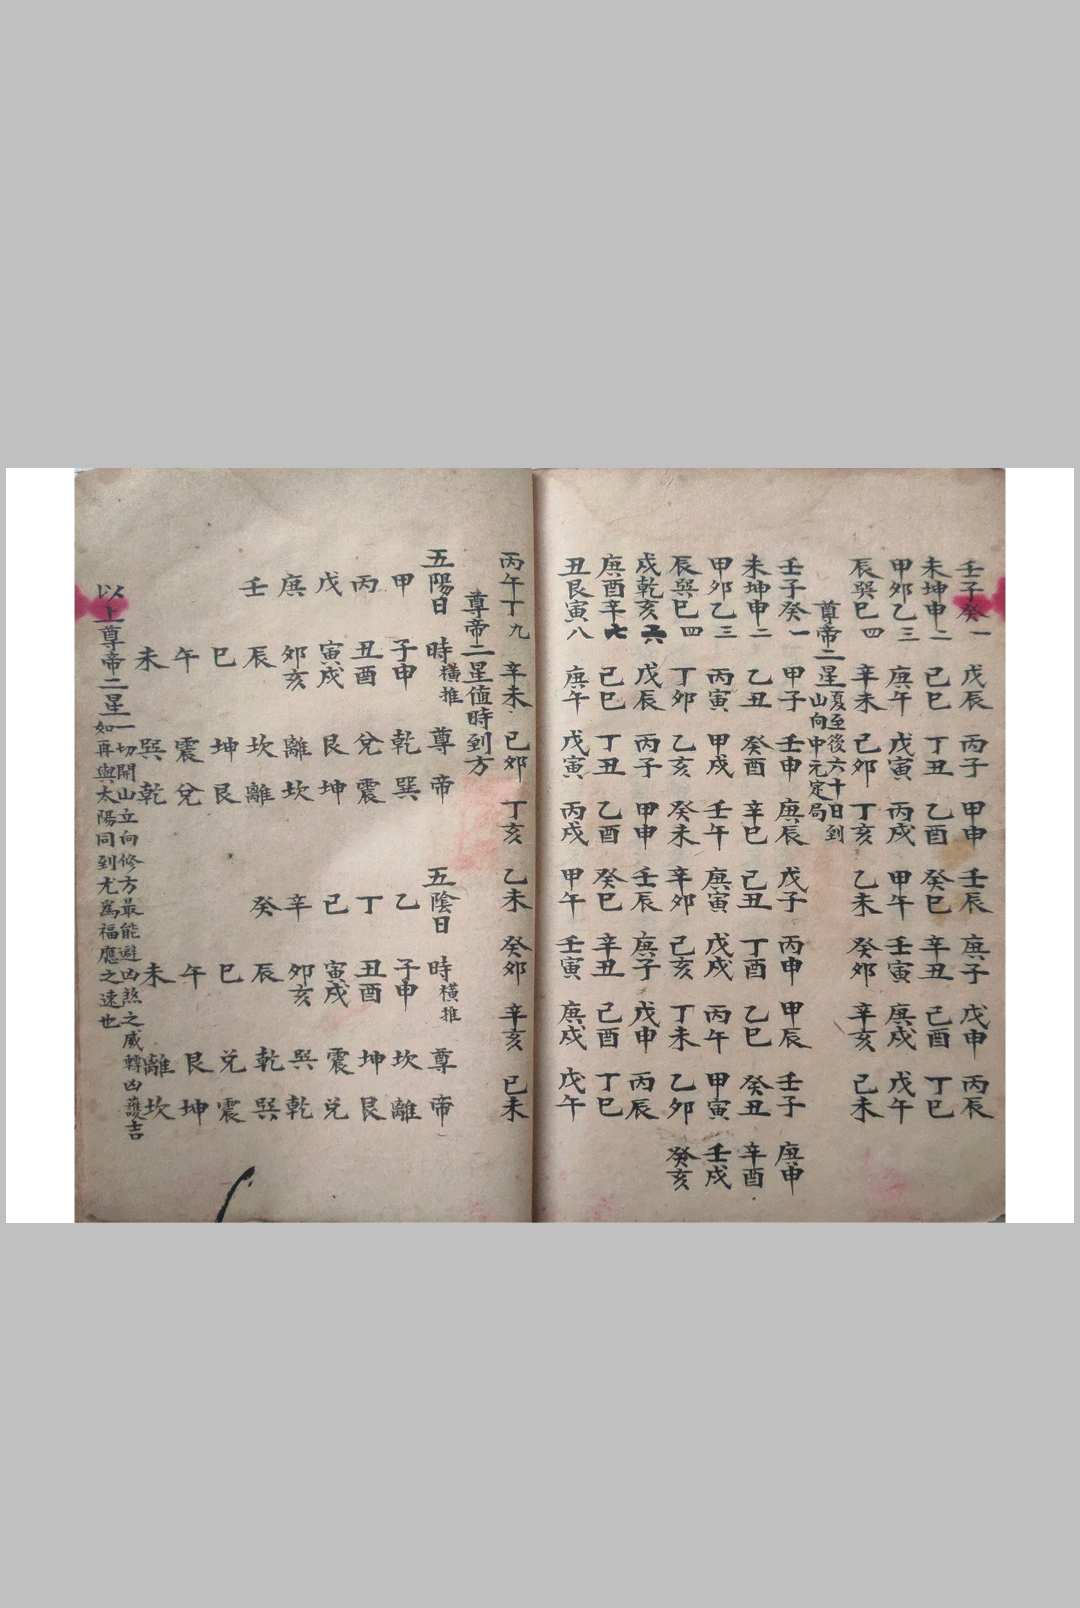 壬子癸一 戊辰 丙子 甲申 壬辰 庚子 戊申 丙辰
未坤申二 己巳 丁丑 乙酉 癸巳 辛丑 己酉 丁巳
甲卯乙三 庚午 戊寅 丙戌 甲午 壬寅 庚戌 戊午
辰巽巳四 辛未 己卯 丁亥 乙未 癸卯 辛亥 己未
尊帝二星 夏至後六十日到
山向中元定局
壬子癸一 甲子 壬申 庚辰 戊子 丙申 甲辰 壬子 庚申
未坤申二 乙丑 癸酉 辛巳 己丑 丁酉 乙巳 癸丑 辛酉
甲卯乙三 丙寅 甲戌 壬午 庚寅 戊戌 丙午 甲寅 壬戌
辰巽巳四 丁卯 乙亥 癸未 辛卯 己亥 丁未 乙卯 癸亥
戌乾亥六 戊辰 丙子 甲申 壬辰 庚子 戊申 丙辰
庚酉辛七 己巳 丁丑 乙酉 癸巳 辛丑 己酉 丁巳
丑艮寅八 庚午 戊寅 丙戌 甲午 壬寅 庚戌 戊午
丙午丁九 辛未 己卯 丁亥 乙未 癸卯 辛亥 己未
尊帝二星值時到方
五陽日 時橫推 尊 帝 五陰日 時橫推 尊 帝
甲 子申 乾 巽 乙 子申 坎 離
丙 丑酉 兌 震 丁 丑酉 坤 艮
戊 寅戌 艮 坤 己 寅戌 震 兌
庚 卯亥 離 坎 辛 卯亥 巽 乾
壬 辰 坎 離 癸 辰 乾 巽
巳 坤 艮 巳 兌 震
午 震 兌 午 艮 坤
未 巽 乾 未 離 坎
以上尊帝二星 一切開山立向修方最能避凶煞之威轉凶護吉
如再與太陽同到尤為福應之速也